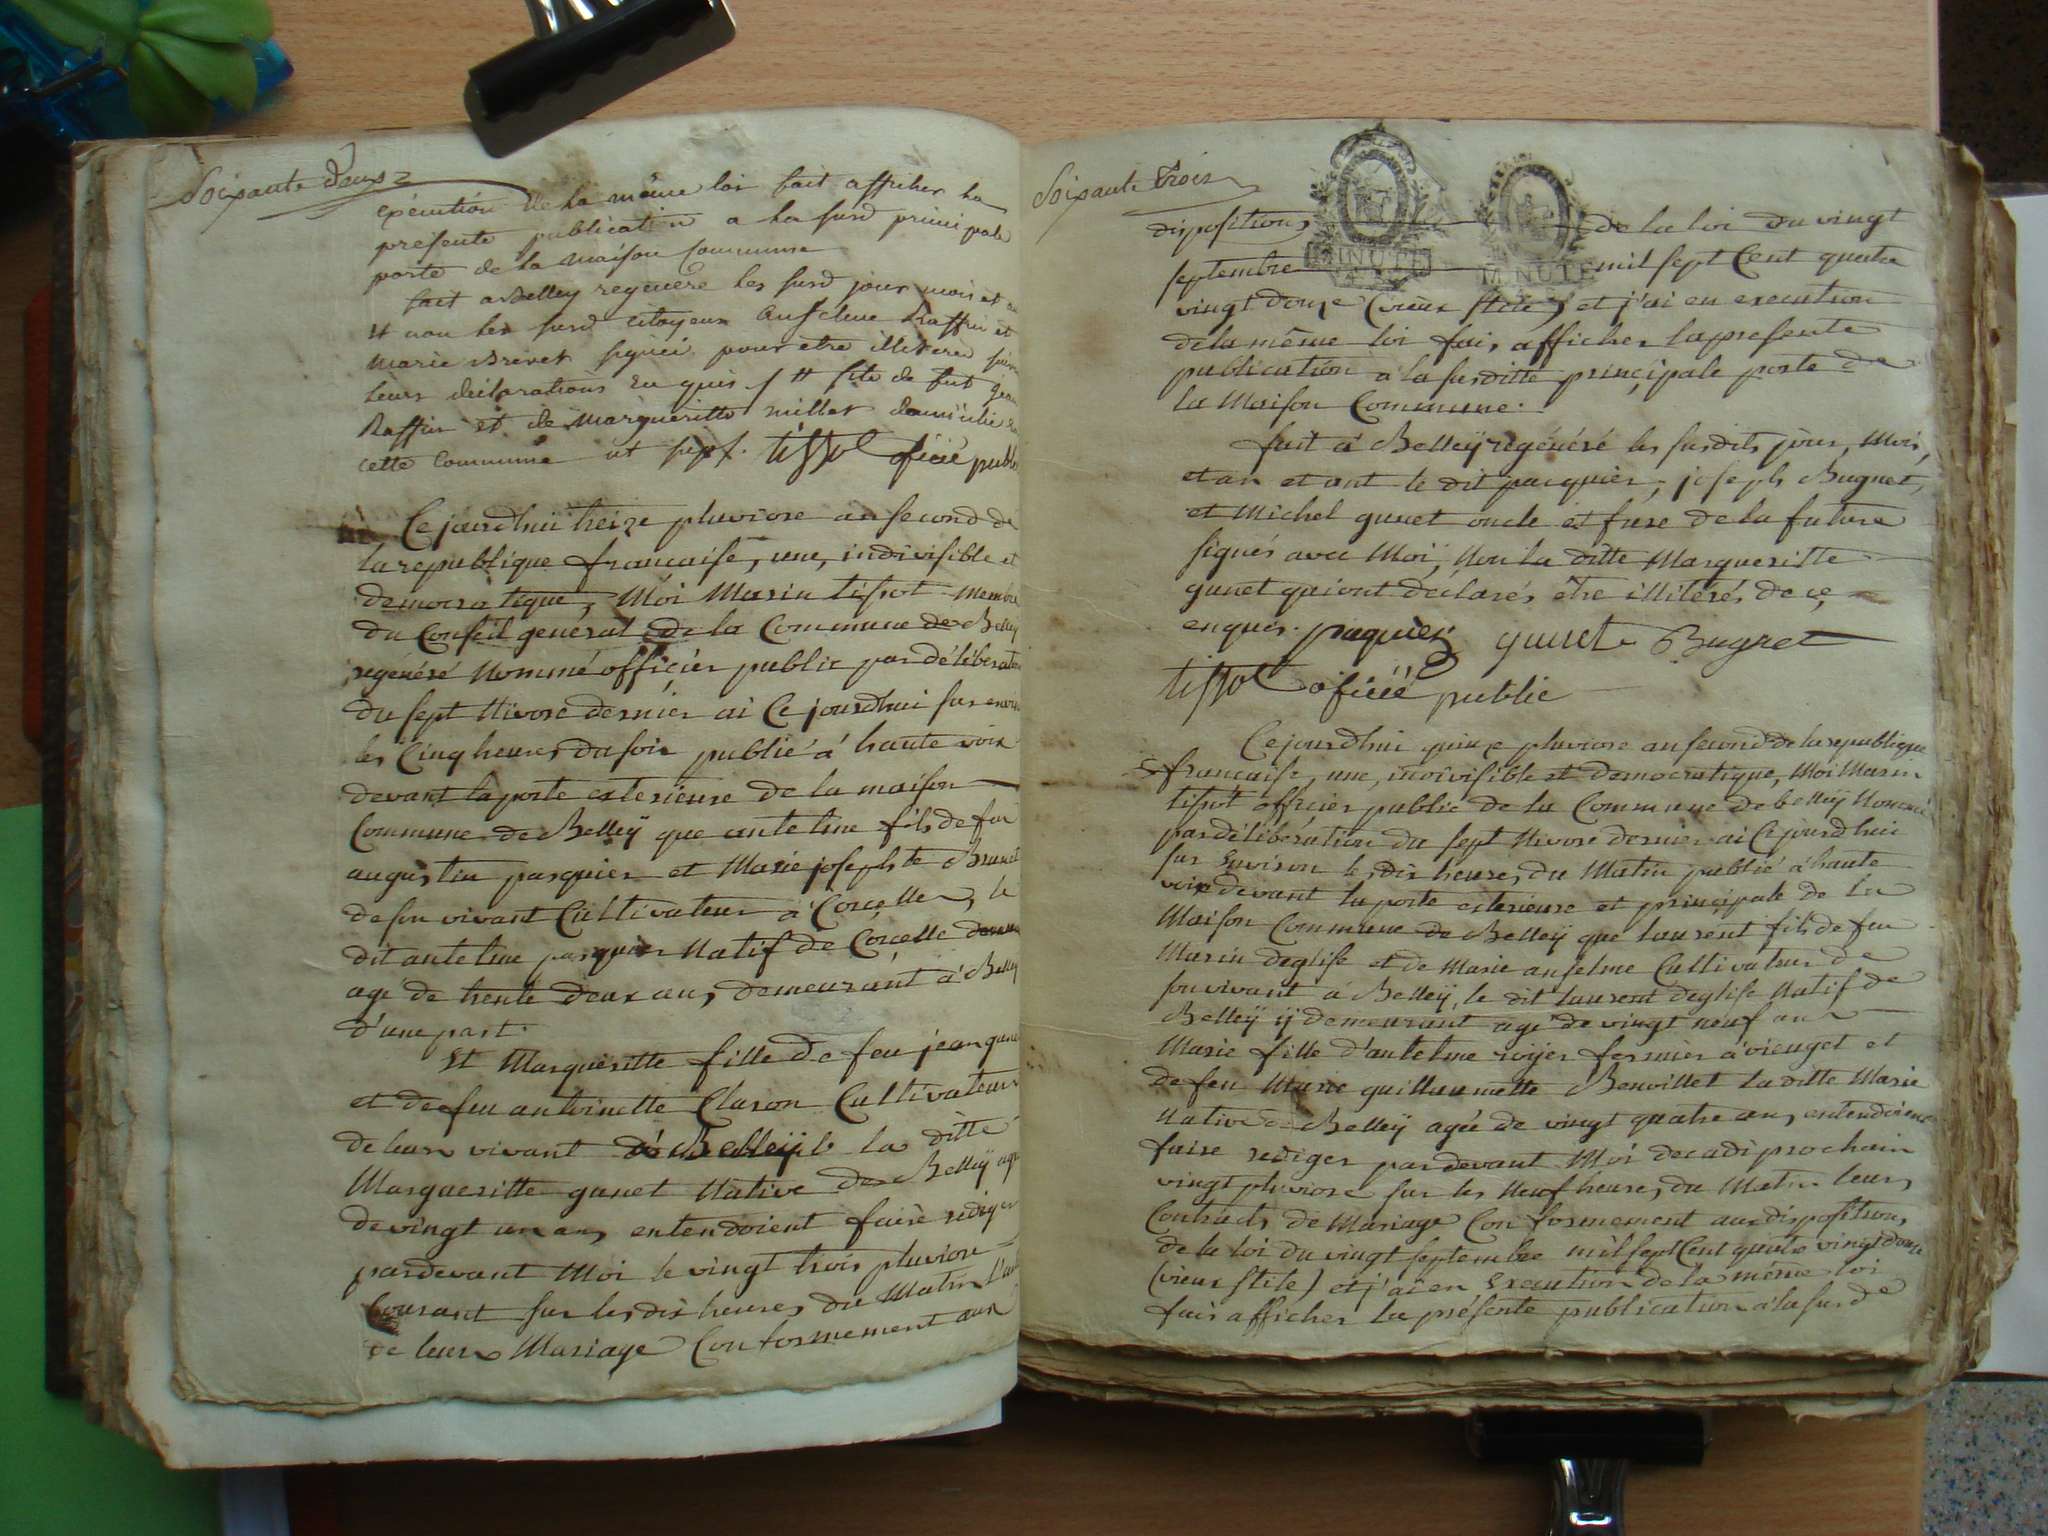 Soixante deux
exécution de la même loi fait afficher la
présente publication a la susd principale
porte de la maison Commune
fait a Belley regénéré les susd jour mois et an
et non les susd citoyens Anselme Raffin et
Marie Brevet signéé pour etre illiteré
leurs déclarations enquis / # fils de fut Jean
Raffin et de Margueritte millet domicilié
cette Commune ut sup. tissot oficié public
Ce jourdhui treize pluviose an second de
la republique francaise, une, indivisible et
democratique, Moi Marin tissot Membre
du Conseil general de la Commune de Belley
regénéré Nommé officier public par déliberation
du sept Nivose dernier ai Ce jourdhui sur environ
les Cinq heures du soir publié à haute voix
devant la porte exterieure de la maison
Commune de Belleÿ que antelme fils de feu
augustin pasquier et Marie josephte Brunet
de son vivant Cultivateur à Corcelle, le
dit antelme pasquier Natif de Corcelle
agé de trente deux ans, demeurant à Belley
d'une part.
Et Margueritte fille de feu jean gunet
et de feu antoinette Claron Cultivateurs
de leur vivant à Belleÿ la ditte
Margueritte gunet Native de Belleÿ agée
de vingt un ans, entendoient faire rediger
pardevant Moi le vingt trois pluviose
Courant sur les dix heures du Matin l'acte
de leur Mariage Conformement aux
Soixante Trois
dispositions de la loi du vingt
MINUTE MINUTE
septembre mil sept Cent quatre
vingt douze (vieux stile) et j'ai en execution
de la même loi fais afficher la presente
publication à la susditte principale porte de
la Maison Commune.
fait à Belleÿ regénéré les susdits jour, Mois,
et an et ont le dit pasquier, joseph Bugnet,
et Michel gunet oncle et frere de la future
signés avec Moi, Non la ditte Margueritte
gunet qui ont déclarés être illitérés de ce
enquis. paquier gunet Bugnet
tissot oficié public
Ce jourdhui quinze pluviose an second de la republique
francaise, une, indivisible et democratique, Moi Marin
tissot officier public de la Commune de belleÿ Nommé
par déliberation du sept Nivose dernier ai Ce jourdhui
sur Environ les dix heures du Matin publié à haute
voix devant la porte exterieure et principale de la
Maison Commune de Belleÿ que laurent fils de feu
Marin deglise et de Marie anselme Cultivateur de
son vivant à Belleÿ, le dit laurent deglise Natif de
Belleÿ ÿ demeurant agé de vingt neuf an
Marie fille d'antelme royer fermier à vieuget et
de feu Marie guillaumette Benvillet la ditte Marie
Native de Belleÿ agée de vingt quatre ans, entendoient
faire rediger pardevant Moi decadi prochain
vingt pluviose sur les Neuf heures du Matin leurs
Contracts de Mariage Conformement aux dispositions
de la loi du vingt septembre mil sept Cent quatre vingt douze
(vieux stile) et j'ai en Execution de la même loi
fais afficher la présente publication à la susde